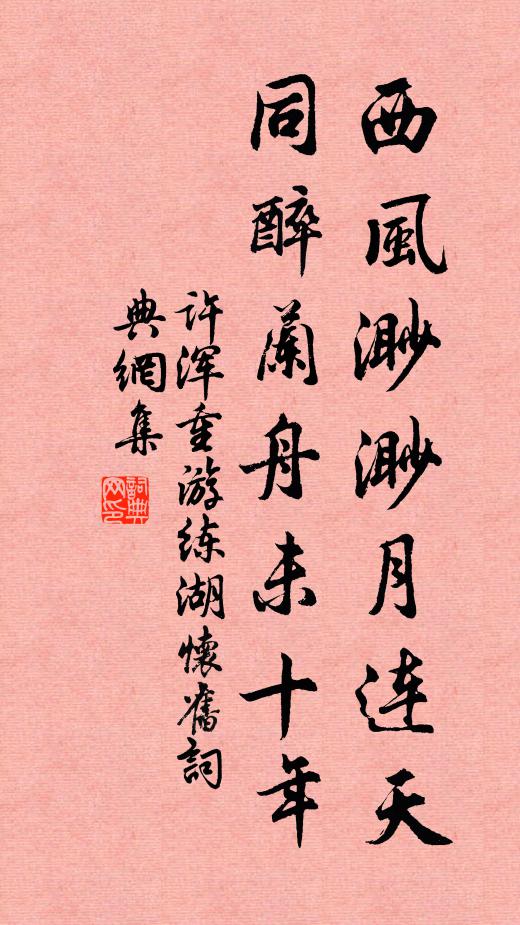 西風渺渺月連天
同醉蘭舟未十年
许浑重游练湖懷舊詞
典網集
詞典网印